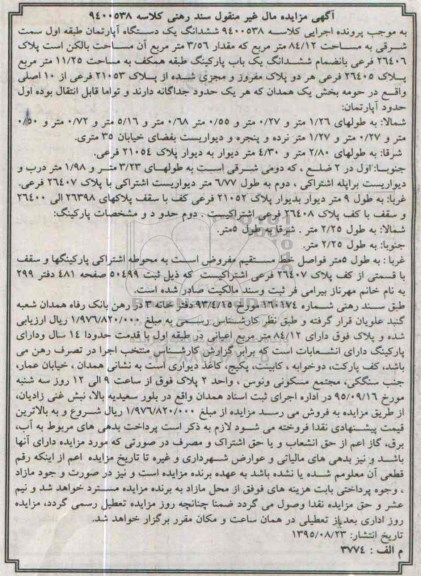 آگهی مزایده مال غیر منقول سند رهنی کلاسه ۹۴۰۰۵۳۸
به موجب پرونده اجرایی کلاسه ۹۴۰۰۵۳۸ ششدانگ یک دستگاه آپارتمان طبقه اول سمت
شرقی به مساحت ۸۴/۱۲ متر مربع که مقدار ۳/۵۶ متر مربع آن مساحت بالکن است پلاک
۲۶۴۰۶ فرعی بانضمام ششدانگ یک باب پارکینگ طبقه همکف به مساحت ۱۱/۲۵ متر مربع
پلاک ۲۶۴۰۵ فرعی هر دو پلاک مفروز و مجزی شده از پلاک ۲۱۰۵۳ فرعی از ۱۰ اصلی
واقع در حومه بخش یک همدان که هر یک حدود جداگانه دارند و تواما قابل انتقال بوده اول
حدود آپارتمان:
شمالا: به طولهای ۱/۲۶ متر و ۰/۲۷ متر و ۰/۵۵ متر ۰/۶۸ متر و ۵/۱۶ متر و ۰/۷۲ متر و ۰/۵۰
متر و ۰/۲۷ متر و ۱/۲۷ متر نرده و پنجره و دیواریست بفضای خیابان ۳۵ متری.
شرقا: به طولهای ۲/۸۰ متر و ۴/۳۰ متر دیوار به دیوار پلاک ۲۱۰۵۴ فرعی.
جنوبا: اول در ۲ ضلع، که دومی شرقی است به طولهای ۳/۲۳ متر و ۱/۹۸ متر درب و
دیواریست براپله اشتراکی، دوم به طول ۶/۷۷ متر دیواریست اشتراکی با پلاک ۲۶۴۰۷ فرعی.
غربا: به طول ۹ متر دیوار بدیوار پلاک ۲۱۰۵۲ فرعی کف با سقف پلاکهای ۲۶۳۹۸ الی ۲۶۴۰۰
و سقف با کف پلاک ۲۶۴۰۸ فرعی اشتراکیست. دوم حدو د و مشخصات پارکینگ:
شمالا: به طول ۲/۲۵ متر. شرقا به طول ۵متر.
جنوبا: به طول ۲/۲۵ متر.
غربا: به طول ۵متر فواصل خط مستقیم مفروض است به محوطه اشتراکی پارکینگها و سقف
با قسمتی از کف پلاک ۲۶۴۰۷ فرعی اشتراکیست که ذیل ثبت ۵۰۴۹۹ صفحه ۴۸۱ دفتر ۲۹۹
به نام خانم مهرناز بیرامی فر ثبت وسند مالکیت صادر شده است.
طبق سند رهنی شماره ۱۶۰۱۷۴ مورخ ۹۳/۴/۱۵ دفتر خانه ۳ در رهن بانک رفاه همدان شعبه
گنبد علویان قرار گرفته و طبق نظر کارشناس رسمی به مبلغ ۱/۹۷۶/۸۲۰/۰۰۰ ریال ارزیابی
شده و پلاک فوق دارای ۸۴/۱۲متر مربع اعیانی در طبقه اول با قدمت حدودا ۱۴ سال ودارای
پارکینگ دارای انشعابات است که برابر گزارش کارشناس منتخب اجرا در تصرف رهن می
باشد، کف پارکت، دوخوابه، کابینت، پکیج، کاغذ دیواری است به نشانی همدان، خیابان عمار،
جنب سنگکی، مجتمع مسکونی ونوس، واحد ۲ پلاک فوق از ساعت ۹ الی ۱۲ روز سه شنبه
مورخ ۹۵/۰۹/۱۶ در اداره اجرای ثبت اسناد همدان واقع در بلوار سعیدیه بالا، نبش غنی زادیان،
از طریق مزایده به فروش می رسد مزایده از مبلغ ۱/۹۷۶/۸۲۰/۰۰۰ ریال شروع و به بالاترین
قیمت پیشنهادی نقدا فروخته می شود لازم به ذکر است پرداخت بدهی های مربوط به آب،
برق، گاز اعم از حق انشعاب و یا حق اشتراک و مصرف در صورتی که مورد مزایده دارای آنها
باشد و نیز بدهی های مالیاتی و عوارض شهرداری و غیره تا تاریخ مزایده اعم از اینکه رقم
قطعی آن معلومم شده یا نشده باشد به عهده برنده مزایده است و نیز در صورت و جود مازاد
، وجوه پرداختی بابت هزینه های فوق از محل مازاد به برنده مزایده مسترد خواهد شد و نیم
عشر و حق مزایده نقدا وصول می گردد ضمنا چنانچه روز مزایده تعطیل رسمی گردد، مزایده
روز اداری بعداز تعطیلی در همان ساعت و مکان مقرر برگزار خواهد شد.
تاریخ انتشار: ۱۳۹۵/۰۸/۲۳
م الف : ۳۷۷۴